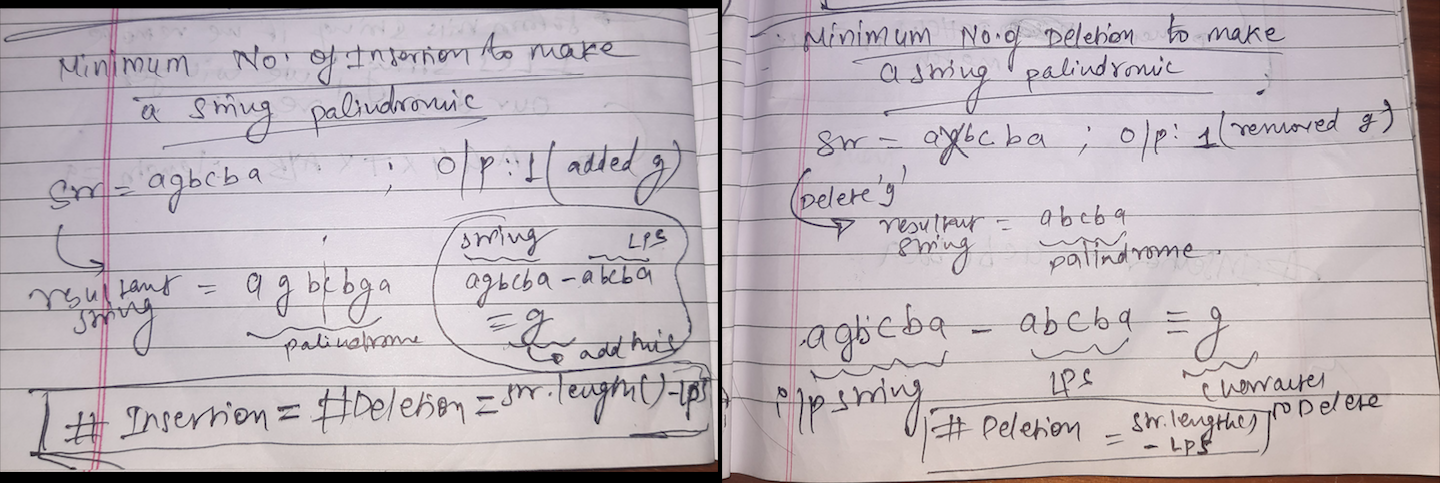 Minimum No. of Insertion to make
a string palindromic
Str = agbcba ; O/p : 1 (added g)
resultant string = agbcbga
palindrome
string LPS
agbcba - abcba
= g
add this
# Insertion = #Deletion = str.length() - LPS
Minimum No. of Deletion to make
a string palindromic
Str = agbcba ; O/p : 1 (removed g)
Delete 'g'
resultant string = abcba
palindrome
agbcba - abcba = g
i/p string LPS character to Delete
# Deletion = str.length()
- LPS